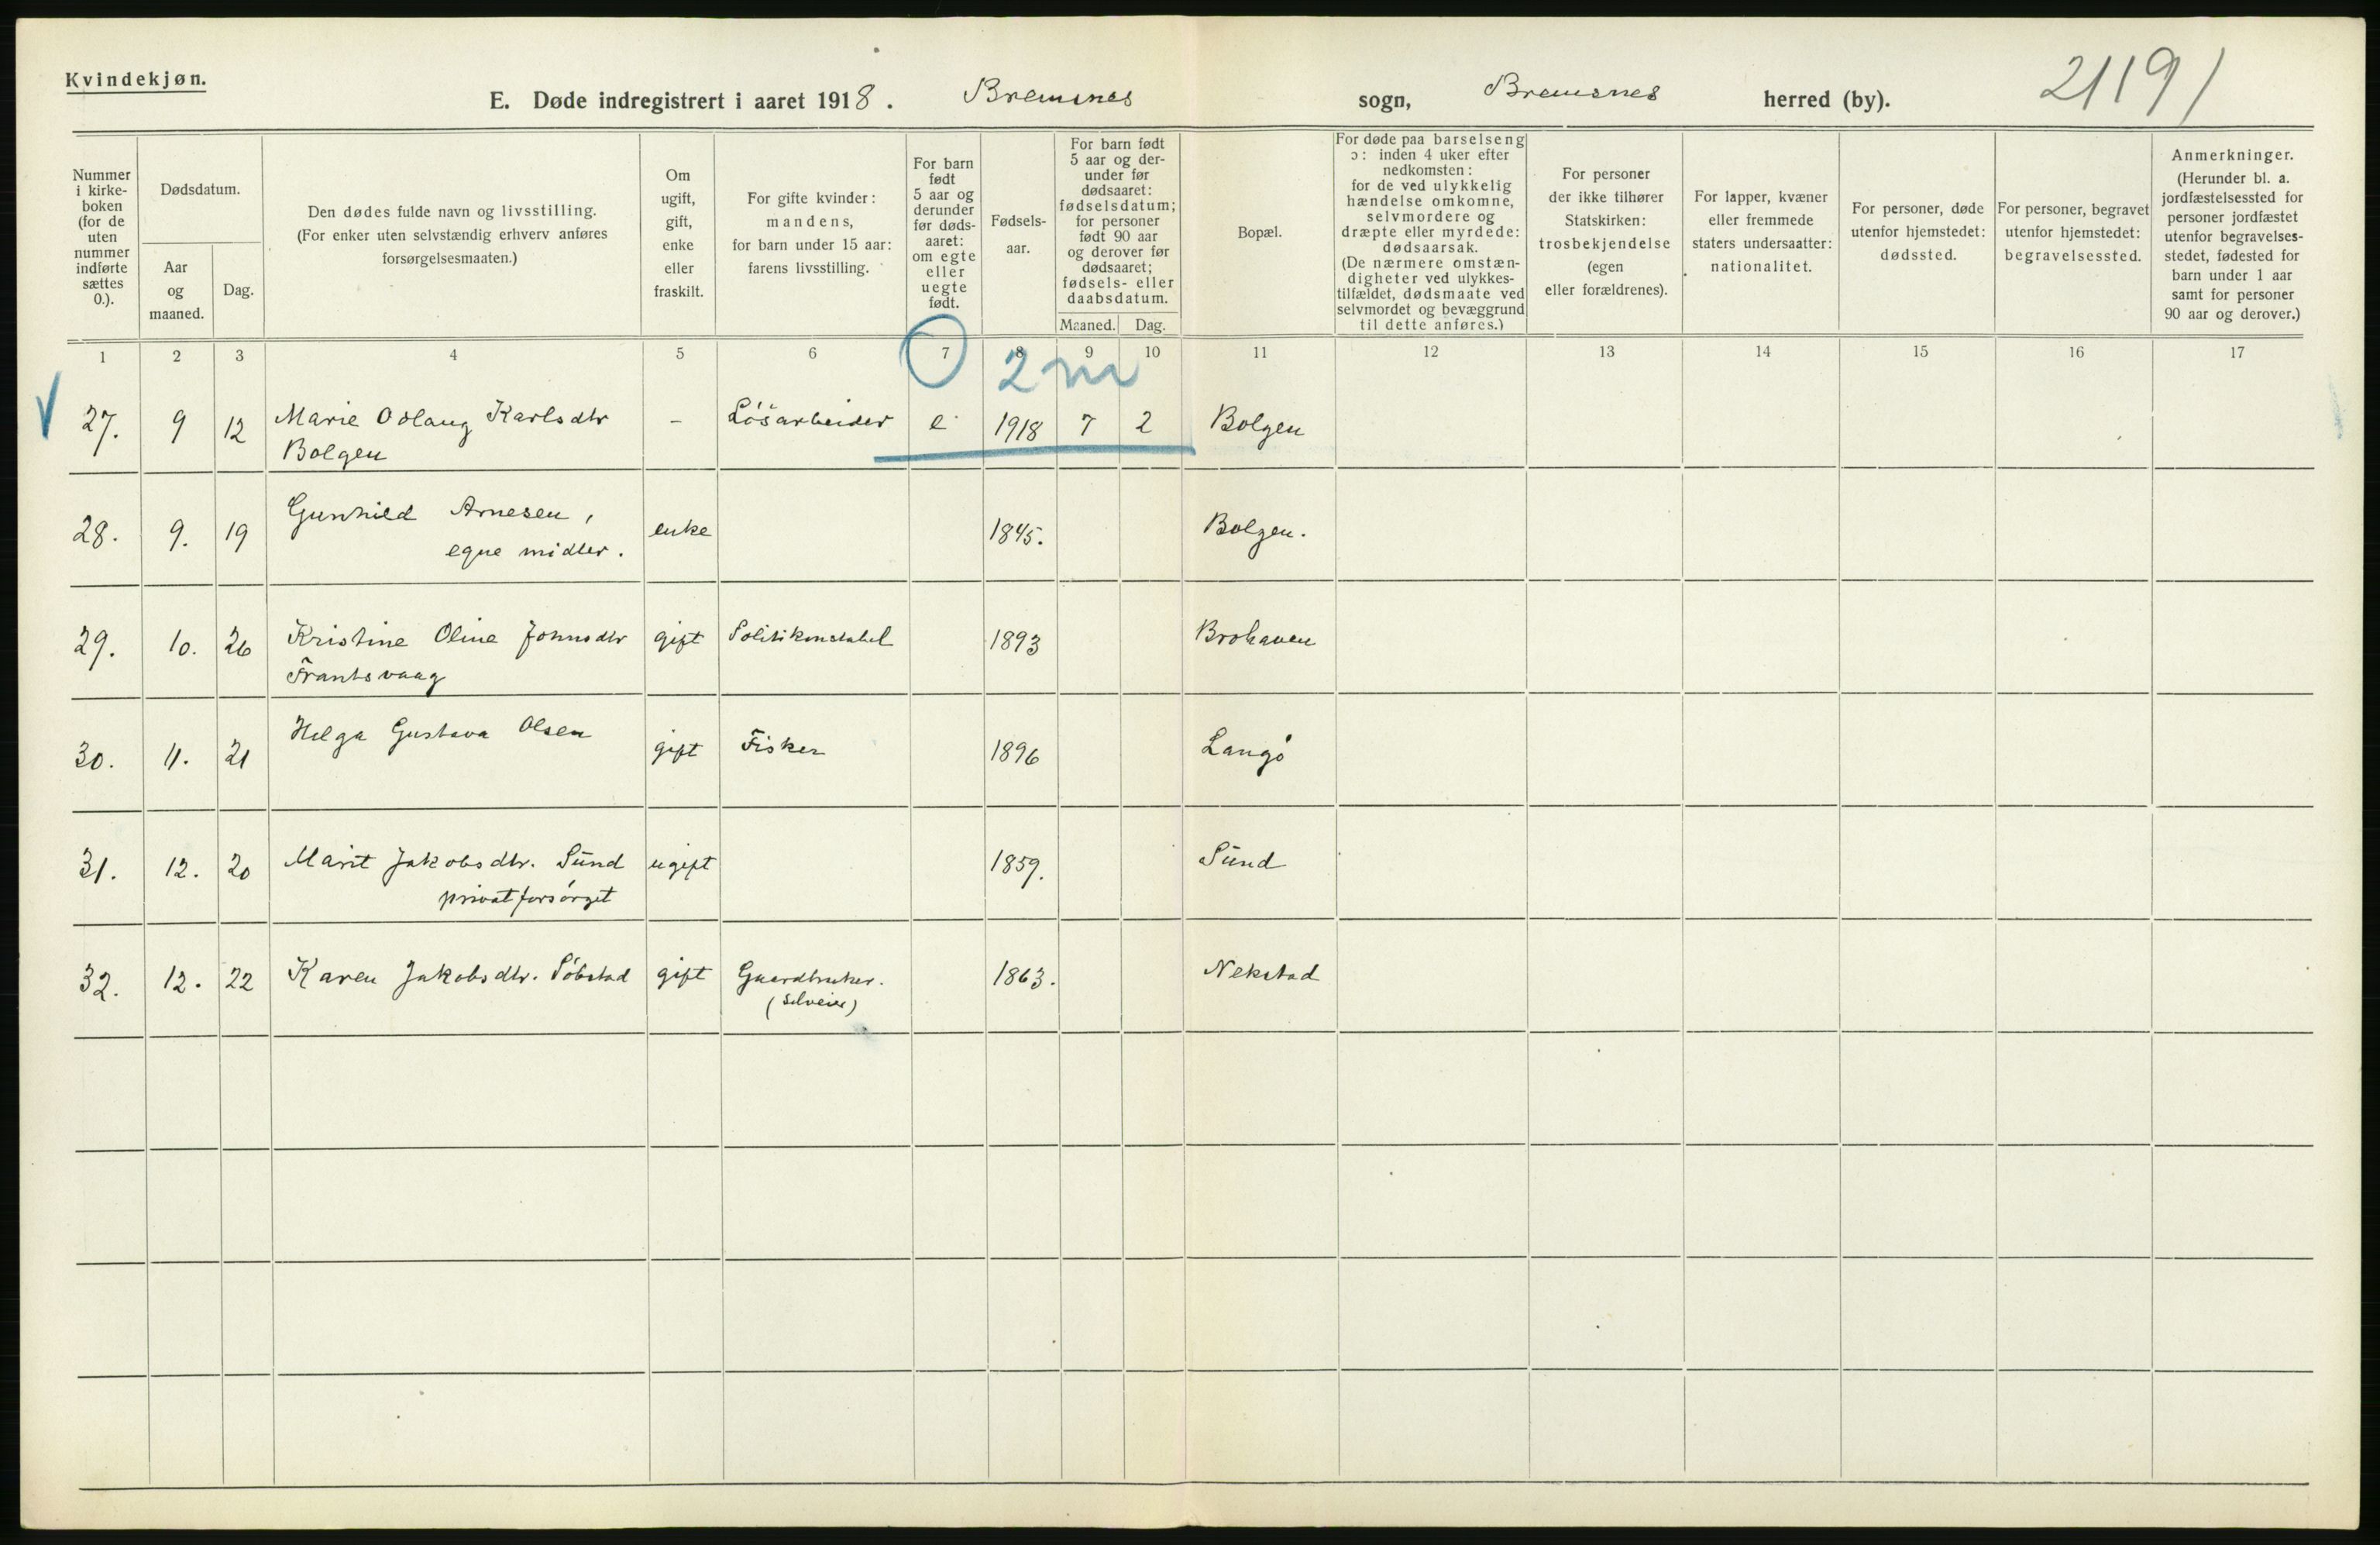 Kvindekjøn.
E. Døde indregistrert i aaret 1918. Bremsnes sogn, Bremsnes herred (by).
21191
Nummer
i kirke-
boken
(for de
uten
nummer
indførte
sættes
0.).
Dødsdatum.
Aar
og
maaned.
Dag.
Den dødes fulde navn og livsstilling.
(For enker uten selvstændig erhverv anføres
forsørgelsesmaaten.)
Om
ugift,
gift,
enke
eller
fraskilt.
For gifte kvinder:
mandens,
for barn under 15 aar:
farens livsstilling.
For barn
født
5 aar og
derunder
før døds-
aaret:
om egte
eller
uegte
født.
Fødsels-
aar.
For barn født
5 aar og der-
under før
dødsaaret:
fødselsdatum;
for personer
født 90 aar
og derover før
dødsaaret;
fødsels- eller
daabsdatum.
Maaned. Dag.
Bopæl.
For døde paa barselseng
ɔ: inden 4 uker efter
nedkomsten:
for de ved ulykkelig
hændelse omkomne,
selvmordere og
dræpte eller myrdede:
dødsaarsak.
(De nærmere omstæn-
digheter ved ulykkes-
tilfældet, dødsmaate ved
selvmordet og bevæggrund
til dette anføres.)
For personer
der ikke tilhører
Statskirken:
trosbekjendelse
(egen
eller forældrenes).
For lapper, kvæner
eller fremmede
staters undersaatter:
nationalitet.
For personer, døde
utenfor hjemstedet:
dødssted.
For personer, begravet
utenfor hjemstedet:
begravelsessted.
Anmerkninger.
(Herunder bl. a.
jordfæstelsessted for
personer jordfæstet
utenfor begravelses-
stedet, fødested for
barn under 1 aar
samt for personer
90 aar og derover.)
1 2 3 4 5 6 7 8 9 10 11 12 13 14 15 16 17
0 2 m
27. 9 12 Marie Oslaug Karlsdtr - Løsarbeider e 1918 7 2 Bolgen
Bolgen
28. 9. 19 Gunhild Arnesen, enke 1845. Bolgen.
egne midler.
29. 10. 26 Kristine Oline Johnsdtr gift Politikonstabel 1893 Brohaven
Frantsvaag
30. 11. 21 Helga Gustava Olsen gift Fisker 1896 Langó
31. 12. 20 Marit Jakobsdtr. Sund ugift 1859. Sund
privat forsórget
32. 12. 22 Karen Jakobsdtr. Sóbstad gift Gaardbruker. 1863. Nekstad
(selveier)